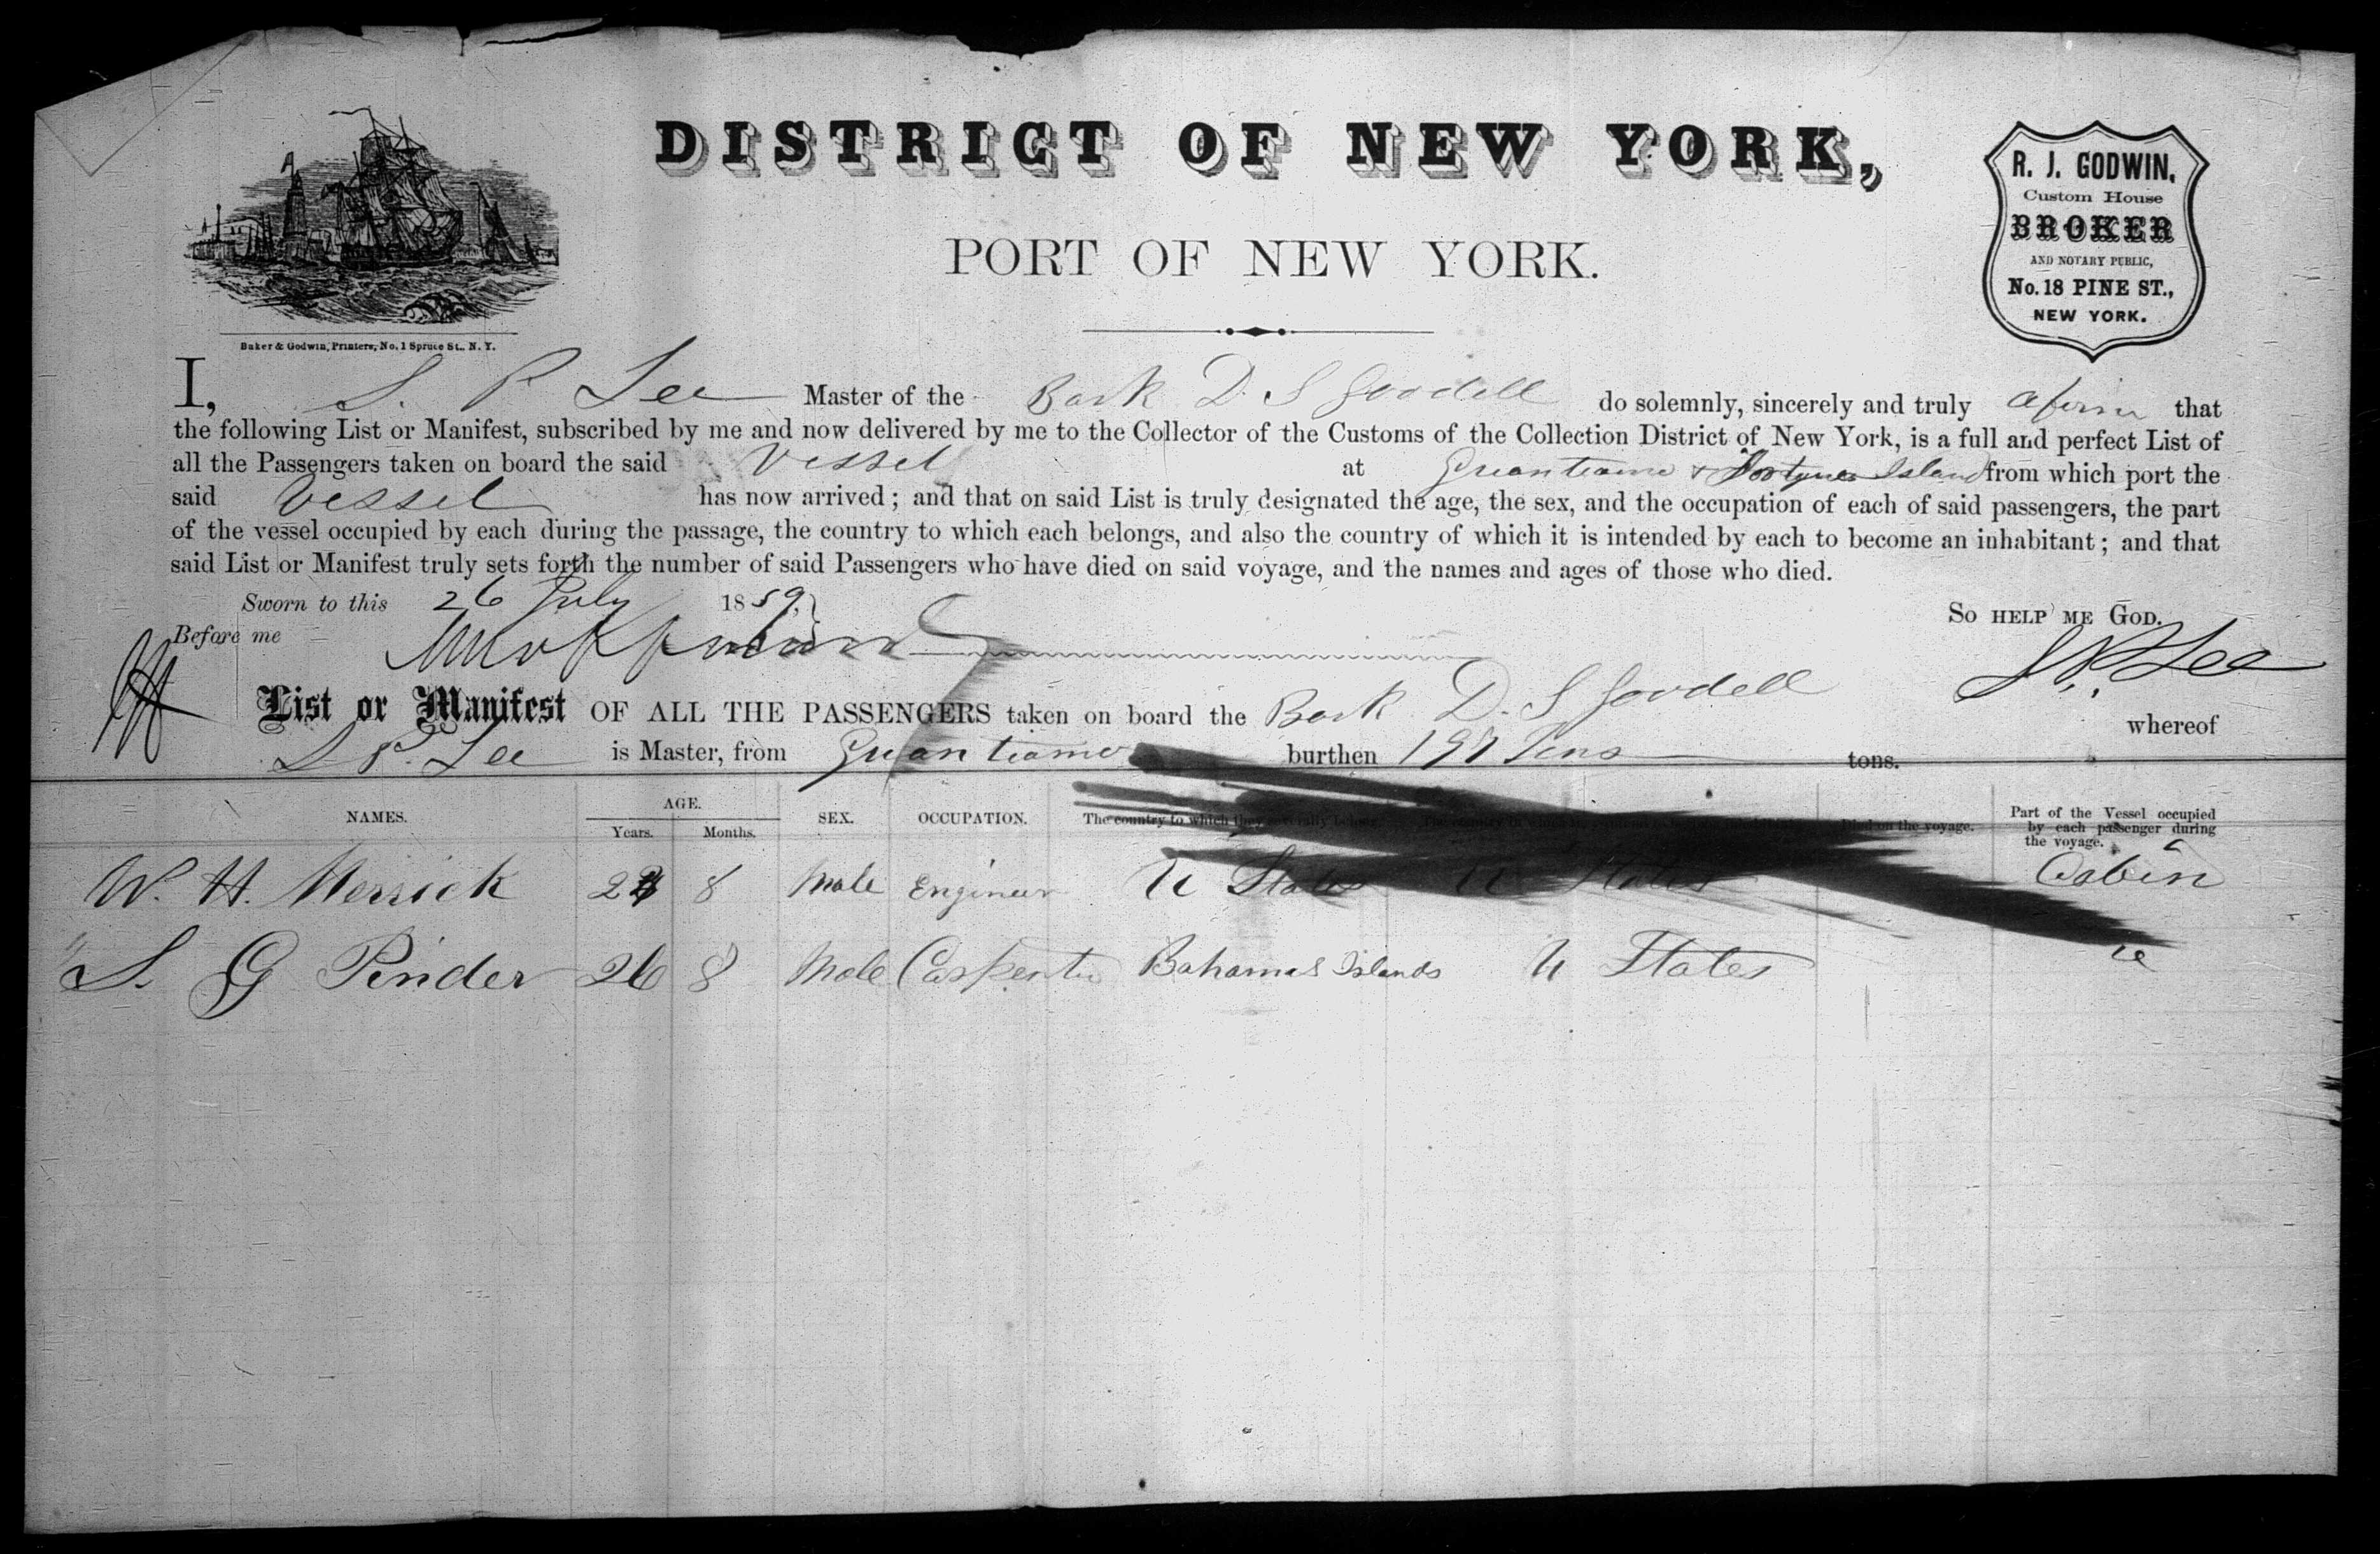 DISTRICT OF NEW YORK,
PORT OF NEW YORK.
R. J. GODWIN,
Custom House
BROKER
AND NOTARY PUBLIC,
No. 18 PINE ST.,
NEW YORK.
Baker & Godwin, Printers, No. 1 Spruce St., N. Y.
I, S. P. Lee Master of the Bark D. S Goodell do solemnly, sincerely and truly afirm that
the following List or Manifest, subscribed by me and now delivered by me to the Collector of the Customs of the Collection District of New York, is a full and perfect List of
all the Passengers taken on board the said Vessel at Guantiamo & Fortune Island from which port the
said Vessel has now arrived; and that on said List is truly designated the age, the sex, and the occupation of each of said passengers, the part
of the vessel occupied by each during the passage, the country to which each belongs, and also the country of which it is intended by each to become an inhabitant; and that
said List or Manifest truly sets forth the number of said Passengers who have died on said voyage, and the names and ages of those who died.
Sworn to this 26 July 1859,
So HELP ME GOD.
Before me
S. P. Lee
List or Manifest OF ALL THE PASSENGERS taken on board the Bark D. S Goodell whereof
S. P. Lee is Master, from Guantiamo burthen 197 Tons tons.
NAMES. AGE. Years. Months. SEX. OCCUPATION. The country to which they severally belong. Died on the voyage. Part of the Vessel occupied by each passenger during the voyage.
W. H. Merrick 8 Male Engineer U States U States Cabin
S. G Pinder 26 8 Male Carpenter Bahamas Islands U States "